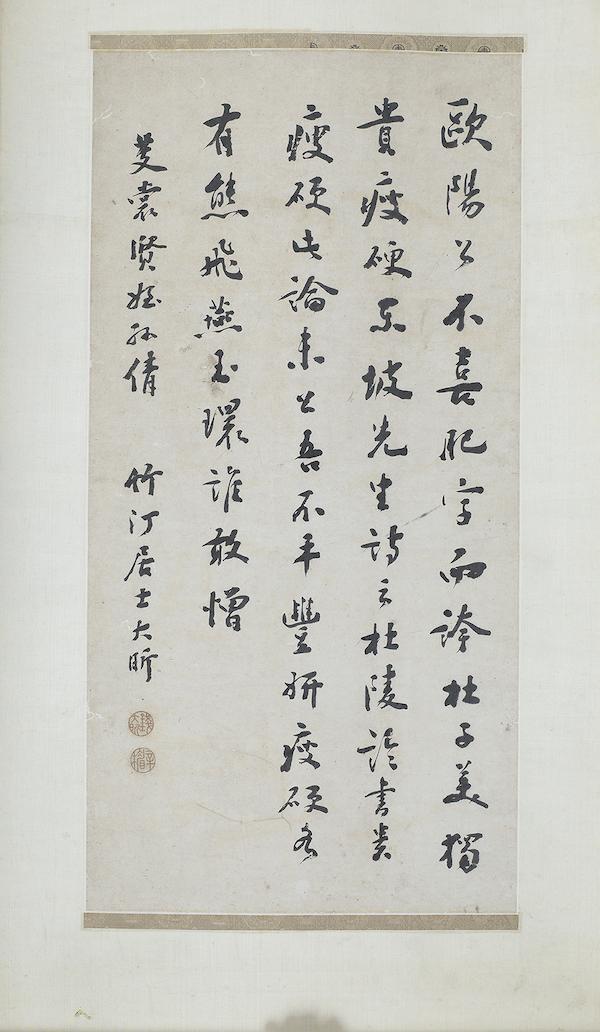 歐陽公不喜肥字而誇杜子美獨
貴瘦硬东坡先生詩云杜陵論書貴
瘦硬此論未公吾不平豐妍瘦硬各
有態飛燕玉環誰敢憎
芰裳賢姪孫倩 竹汀居士大昕